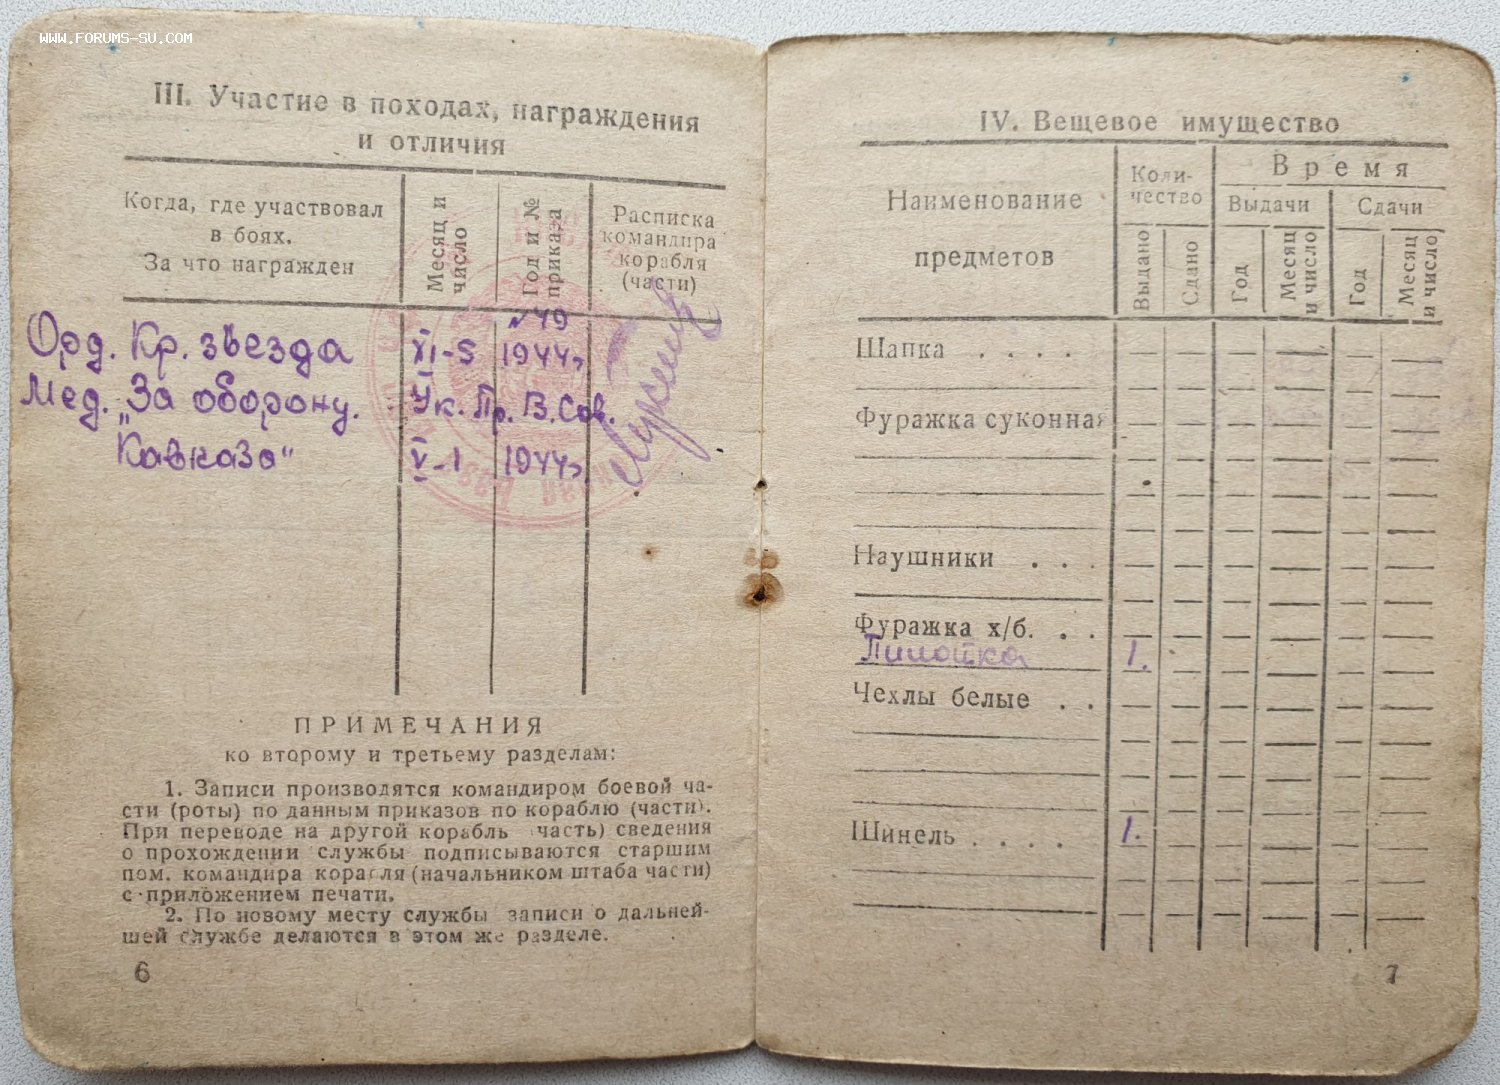 WWW.FORUMS-SU.COM
III. Участие в походах, награждения
и отличия
Когда, где участвовал
в боях.
За что награжден
Месяц и
число
Год и №
приказа
Расписка
командира
корабля
(части)
№49
Орд. Кр. звезда XI-5 1944г
Мед. „За оборону. Ук. Пр. В. Сов.
Кавказа" V-1 1944г
ПРИМЕЧАНИЯ
ко второму и третьему разделам:
1. Записи производятся командиром боевой ча-
сти (роты) по данным приказов по кораблю (части).
При переводе на другой корабль часть) сведения
о прохождении службы подписываются старшим
пом. командира корабля (начальником штаба части)
с приложением печати.
2. По новому месту службы записи о дальней-
шей службе делаются в этом же разделе.
6
IV. Вещевое имущество
Наименование
предметов
Коли-
чество
Время
Выдачи Сдачи
Выдано
Сдано
Год
Месяц
и число
Год
Месяц
и число
Шапка . . . .
Фуражка суконная
Наушники . . .
Фуражка х/б. . .
Пилотка 1.
Чехлы белые . .
Шинель . . . . 1.
7